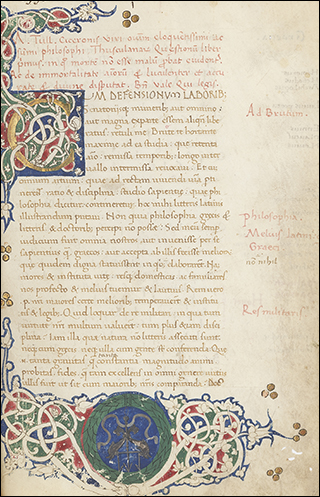 M. Tull. Ciceronis viri omnium eloquentissimi
philosophi Thusculanarum Questionum liber
primus. in quo morte non esse malum probat
de immortalitate luculenter et
divine disputat. Vale Qui legis.
CUM DEFENSIONUM LABORIB;
muneribus aut omnino
aut magna ex parte essem aliquando libe
ratus: retuli me Brute te hortante
maxime ad ea studia: que retenta
animo: remissa temporib; longo inter
vallo intermissa revocavi. Et cum
omnium artium: quae ad rectam vivendi viam per
tinerent ratio et disciplina: studio sapientie: quae phi
losophia dicitur: contineretur: hoc mihi latinis litteris
illustrandum putavi. Non quia philosophia grecis et
litteris et doctorib; percipi non posset: Sed meum semper
iudicium fuit omnia nostros aut invenisse per se
sapientius q̃ grecos: aut accepta ab illis fecisse meliora:
que quidem digna statuissent in quib; elaborarent. Nam
mores et instituta vite: resque domesticas ac familiares
nos profecto et melius tuemur et lautius. Rem vero
p. nostri maiores certe meliorib; temperaverunt et institu
tis et legib;. Quid loquar de re militari: in qua cum
virtute nostri multum valuerunt: tum plus etiam disci
plina. Iam illa que natura non litteris assecuti sunt:
neque cum grecis neque ulla cum gente sunt conferenda. Que
tanta gravitas: que tanta constantia: magnitudo animi:
probitas: fides: que tam excellens in omni genere virtus in
ullis fuit ut sit cum maiorib; nostris comparanda.
Ad Brutum.
Philosophia.
Melius Latini
Graeci
Res militaris